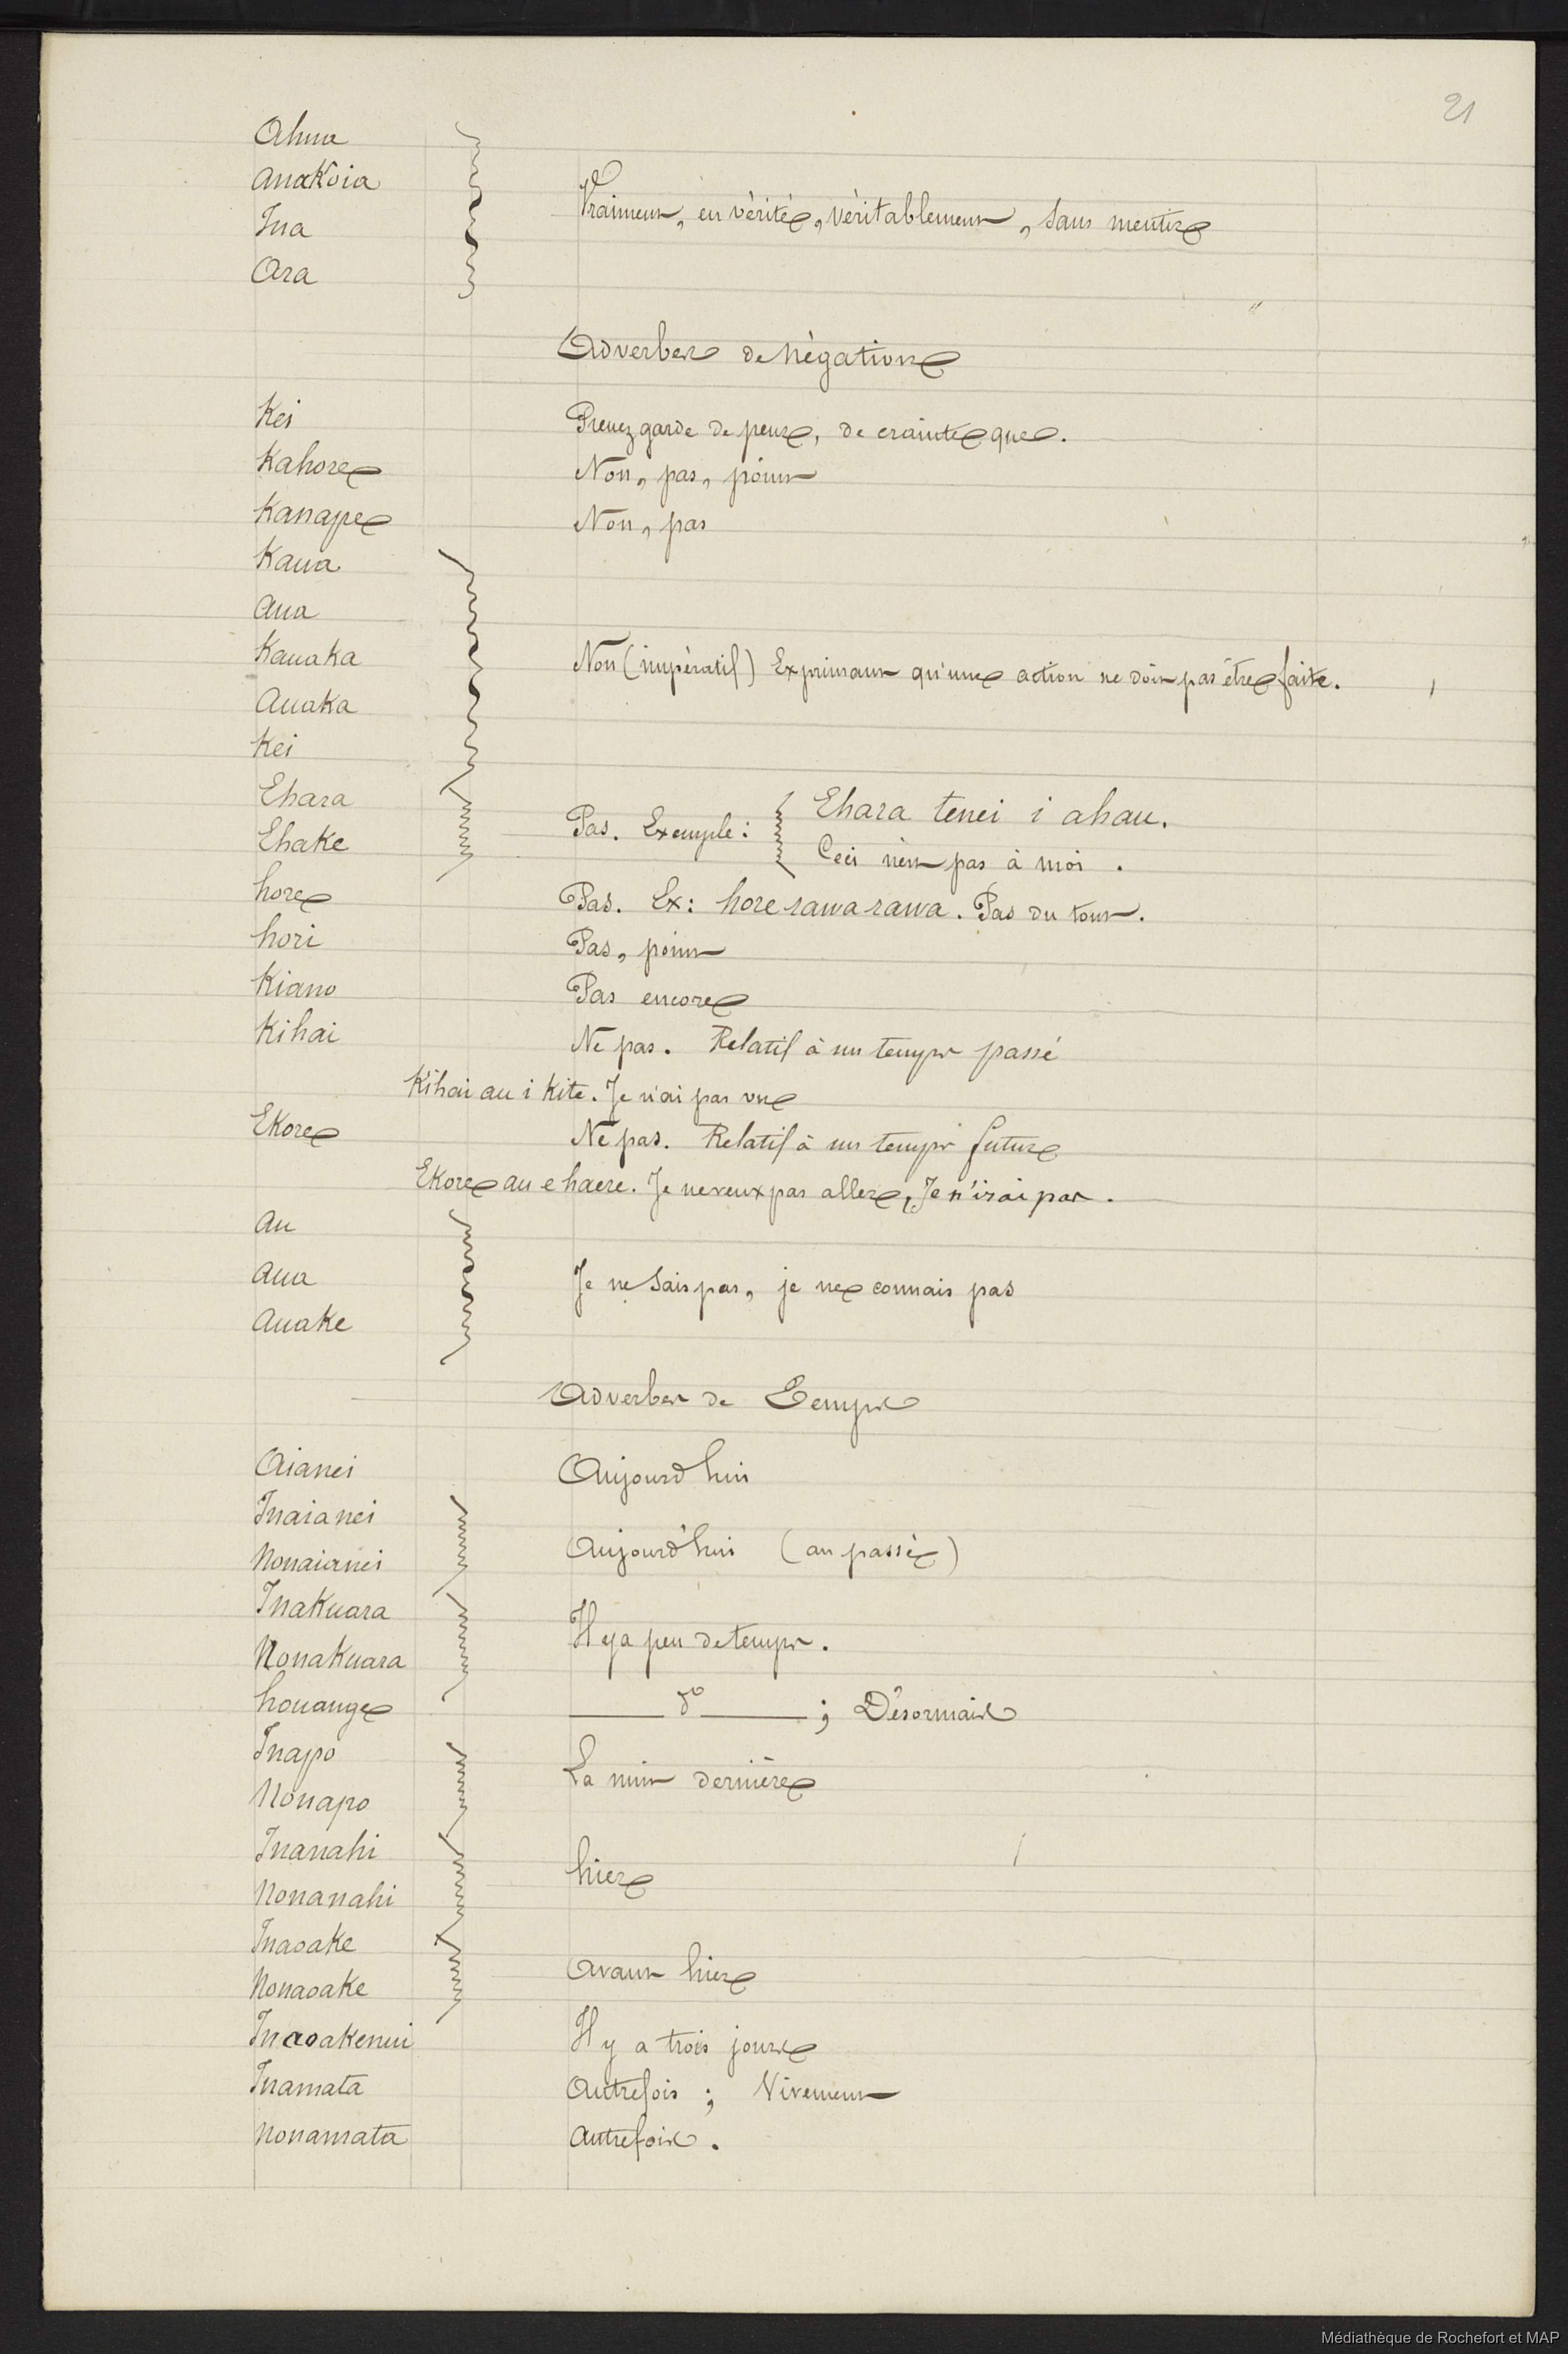 21
Ahua
Anakoia
Ina
Ara
Vraiment, en vérité, véritablement, sans mentir
Adverbes de négation
Kei Prenez garde de peur, de crainte que.
Kahore Non, pas, point
Kanape Non, pas
Kaua
Aua
Kauaka
Auaka
Kei
Non (impératif) Exprimant qu'une action ne doit pas être faite.
Ehara
Ehake
Pas. Exemple: Ehara tenei i ahau.
Ceci n'est pas à moi.
hore Pas. Ex: hore rawa rawa. Pas du tout.
hori Pas, point
Kiano Pas encore
Kihai Ne pas. Relatif à un temps passé
Kihai au i kite. Je n'ai pas vu
Ekore Ne pas. Relatif à un temps futur
Ekore au e haere. Je ne veux pas aller, Je n'irai pas.
Au
Aua
Auake
Je ne sais pas, je ne connais pas
Adverbes de Temps
Aianei Aujourd'hui
Inaianei
Nonaianei
Aujourd'hui (au passé)
Inakuara
Nonakuara
Il y a peu de temps.
houange d° ; Désormais
Inapo
Nonapo
La nuit dernière
Inanahi
Nonanahi
hier
Inaoake
Nonaoake
Avant hier
Inaoakenui Il y a trois jours
Inamata Autrefois ; Vivement
Nonamata Autrefois.
Médiathèque de Rochefort et MAP